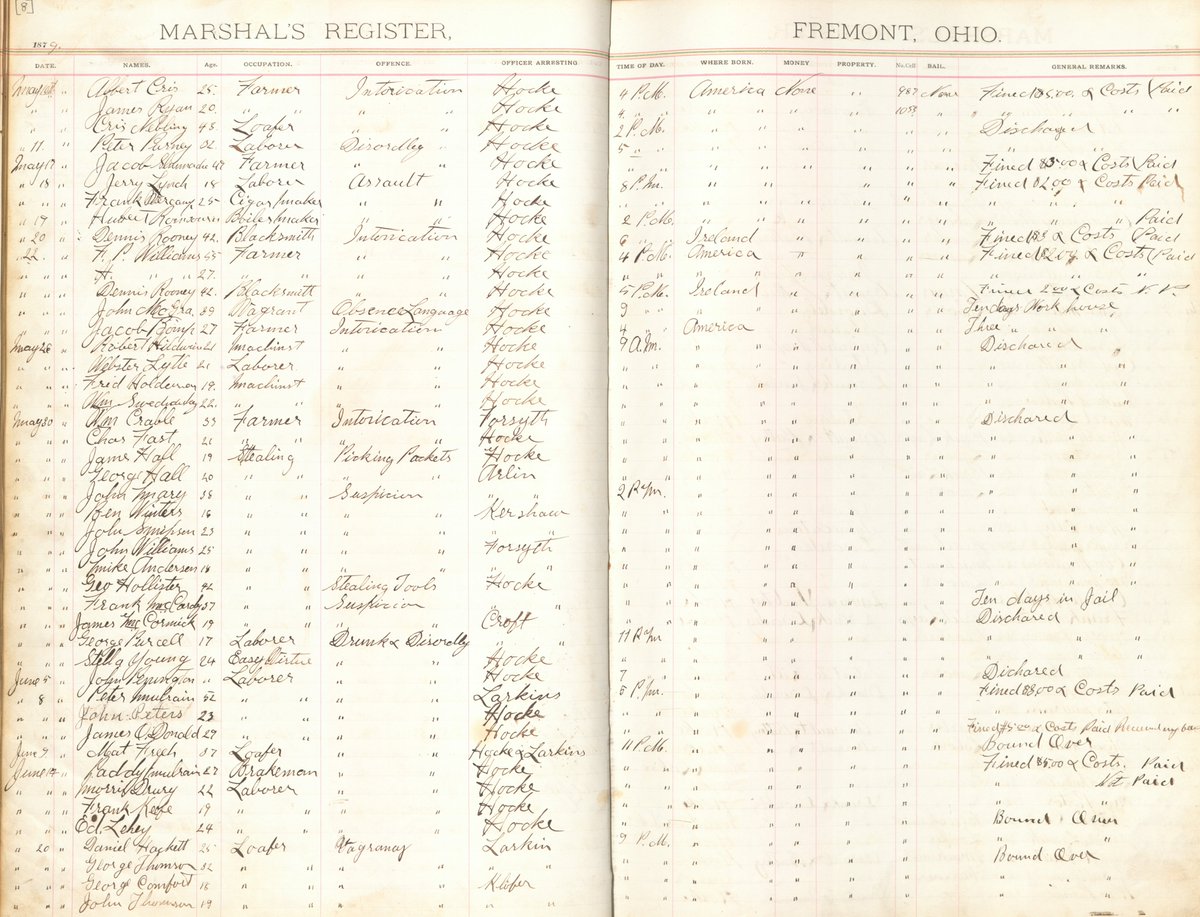 [8]
MARSHAL'S REGISTER, FREMONT, OHIO.
1879.
DATE. NAMES. Age. OCCUPATION. OFFENCE. OFFICER ARRESTING TIME OF DAY. WHERE BORN. MONEY PROPERTY. No. Cell BAIL. GENERAL REMARKS.
May " Albert Cris 25 Farmer Intorication Hocke 4 P.M. America None " 987 None Fined $5.00 & Costs Paid
" " James Ryan 20 " " " " Hocke 4 " " " " " " " " " "
" " Cris 45 Loafer " " Hocke 2 P.M. " " " " " " Discharged
" 11 " Peter Laborer Disordly " Hocke 5 " " " " " "
May 17 " Jacob 47 Farmer " " Hocke " " " " " " Fined $3.00 & Costs Paid
" 18 " Jerry Lynch 18 Laborer Assault Hocke 8 P.M. " " " " " " Fined $2.00 & Costs Paid
" " " Frank 25 Cigar maker " " Hocke " " " " " " " " "
" 19 " Hubert Boiler maker " " Hocke 2 P.M. " " " " " " " Paid
" 20 " Dennis Rooney 42 Blacksmith Intorication Hocke 6 " Ireland " " " " Fined & Costs Paid
" 22 " F. P. Williams 55 Farmer " " Hocke 4 P.M. America " " " " Fined & Costs Paid
" " " H. " " 27 " " " " Hocke " " " " " " " " "
" " " Dennis Rooney 42 Blacksmith " " Hocke 5 P.M. Ireland " " " " Fined 2.00 & Costs
" " " John McGra 39 Vagrant Obsence Language Hocke 9 " " " " " " Ten days Work house
" " " Jacob Bomp 27 Farmer Intorication Hocke 4 " America " " " " Three " " "
May 26 " Robert 21 Machinst " " Hocke 9 A.M. " " " " " " Dischared
" " " Webster Lytle 21 Laborer " " Hocke " " " " " " "
" " " Fred 19 Machinst " " Hocke " " " " " " "
" " " Wm 22 " " " Hocke " " " " " " "
May 30 " Wm Crable 33 Farmer Intorication Forsyth " " " " " " Dischared
" " " Chas Fast 21 " " " " Hocke " " " " " " "
" " " Jame Hall 19 Stealing Picking Pockets Hocke " " " " " " "
" " " George Hall 40 " " " " Arlin " " " " " " "
" " " John Mary 38 " " Suspicion " " 2 P.M. " " " " " "
" " " Ben Winters 16 " " " " Kershaw " " " " " " "
" " " John Simpson 23 " " " " " " " " " " " "
" " " John Williams 25 " " " " Forsyth " " " " " " "
" " " Mike Anderson 18 " " " " " " " " " " " "
" " " Geo Hollister 42 " " Stealing Tools Hocke " " " " " " "
" " " Frank McCardy 37 " " Suspicion " " " " " " " " Ten days in Jail
" " " James McCormick 19 " " " " Croft " " " " " " Dischared
" " " George Purcell 17 Laborer Drunk & Disordly " " 11 P.M. " " " " " "
" " " Young 24 Easy Virtue " " Hocke " " " " " " "
June 5 " John Penington " Laborer " " Hocke 7 " " " " " " Dichared
" 8 " Peter Mulrain 52 " " " " Larkins 5 P.M. " " " " " " Fined $8.00 & Costs Paid
" " " John Peters 23 " " " " Hocke " " " " " " " "
" " " James O. Donald 29 " " " " Hocke " " " " " " Fined & Costs Paid
June 9 " Mat Frech 37 Loafer " " Hocke & Larkins 11 P.M. " " " " " " Bound Over
June 14 " Paddy Mulrain 27 Brakeman " " Hocke " " " " " " Fined $5.00 & Costs. Paid
" " " Morris Drury 22 Laborer " " Hocke " " " " " " " Not Paid
" " " Frank Kefe 19 " " " " Hocke " " " " " " " "
" " " Ed. Lehey 24 " " " " Hocke " " " " " " Bound Over
" 20 " Daniel Hackett 25 Loafer Vagrancy Larkin 9 P.M. " " " " " "
" " " George Thomson 32 " " " " " " " " " " " " Bound Over
" " " George Comfort 18 " " " " " " " " " " "
" " " John Thomson 19 " " " " " " " " " " " "